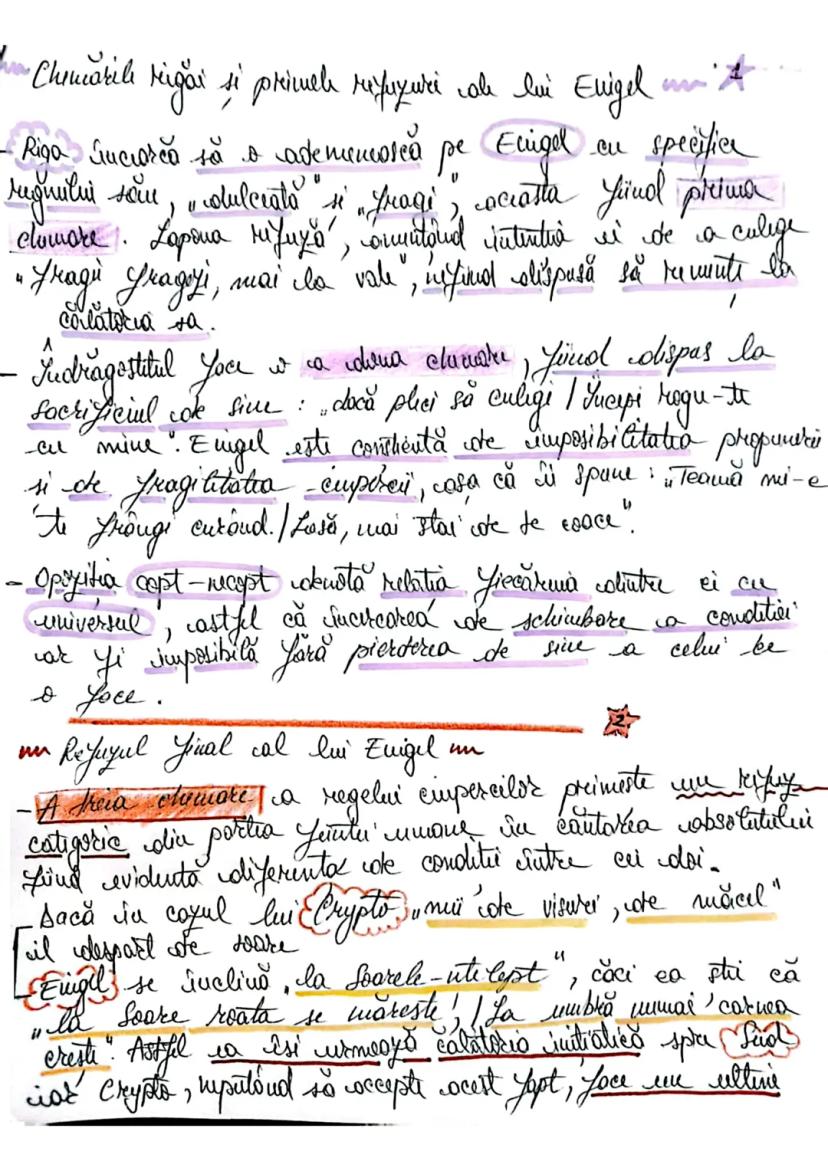 Chemările rigăi și primele refuzuri ale lui Enigel 1
- Riga încearcă să o ademenească pe Enigel cu specifica
regnului său, „dulceață" și „fragi", aceasta fiind prima
chemare. Lapona refuză, anunțând intenția ei de a culege
"fragii fragezi, mai la vale", nefiind dispusă să renunțe la
călătoria sa.
- Îndrăgostitul face o a doua chemare, fiind dispus la
sacrificiul de sine: „dacă pleci să culegi / Începi rogu-te
cu mine". Enigel este conștientă de imposibilitatea propunerii
și de fragilitatea ciupercii, așa că îi spune: „Teamă mi-e
te frângi curând. / Lasă, mai stai de te coace".
- Opoziția copt-necopt denotă relația fiecăruia dintre ei cu
universul, astfel că încercarea de schimbare a condiției
ar fi imposibilă fără pierderea de sine a celui ce
o face.
2
Refuzul final al lui Enigel
- A treia chemare a regelui ciupercilor primește un refuz
categoric din partea ființei umane în căutarea absolutului
fiind evidentă diferența de condiții între cei doi.
Dacă în cazul lui Crypto „mii de visuri, de măcel"
îl despart de soare
Enigel se înclină „la Soarele-nțelept", căci ea știe că
„la soare roata se mărește; / La umbră numai carnea
crește". Astfel ea își urmează călătoria inițiatică spre Sud
iar Crypto, neputând să accepte acest fapt, face un ultim